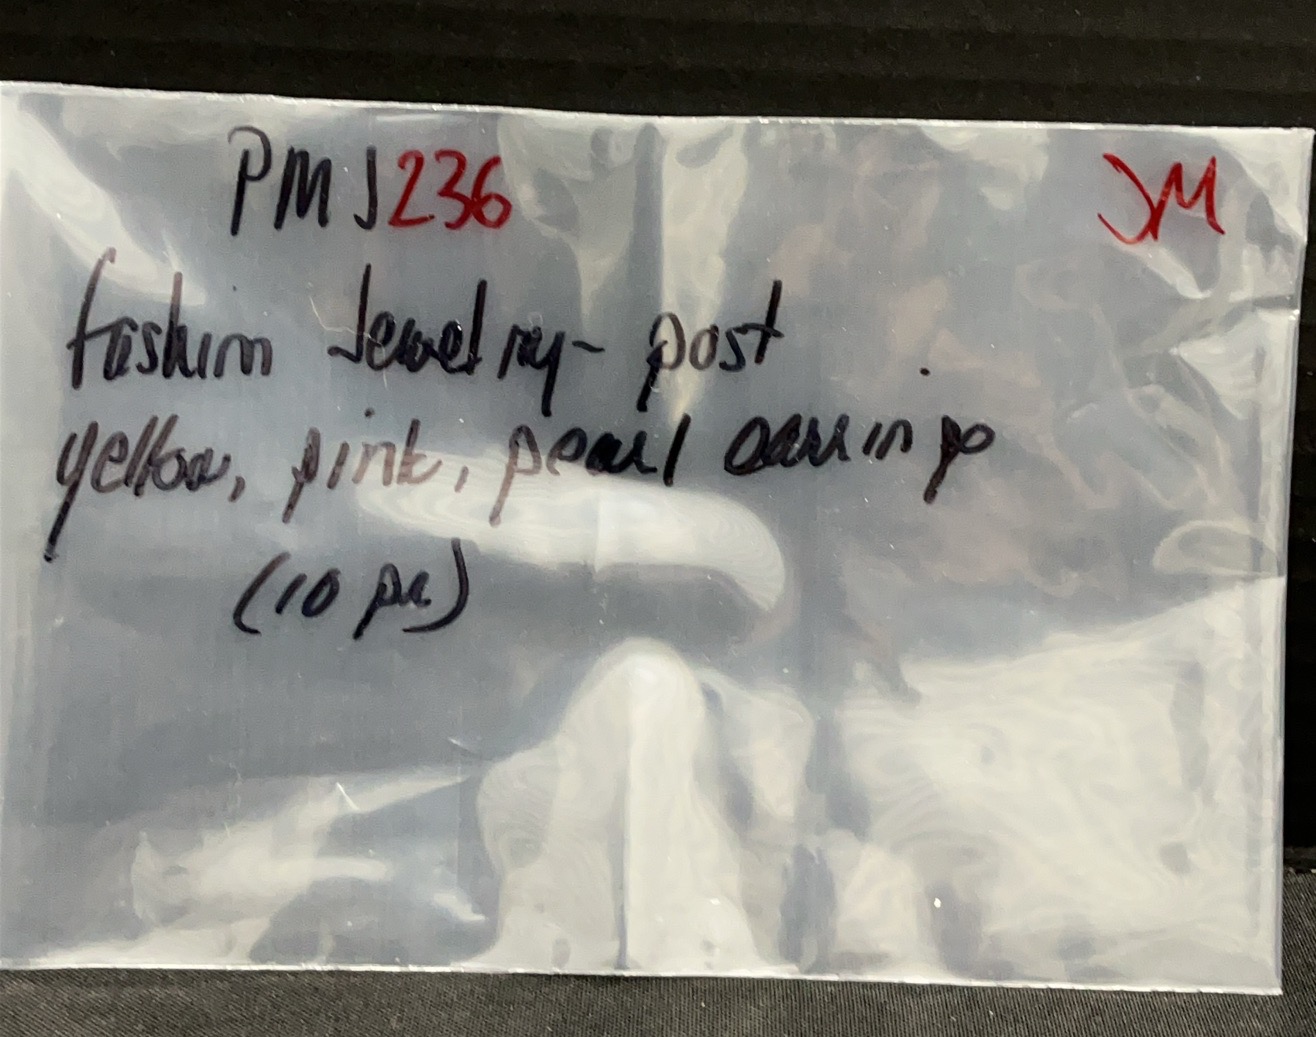 PMJ236 JM
fashion Jewelry- post
yellow, pink, pearl earrings
(10 pc)